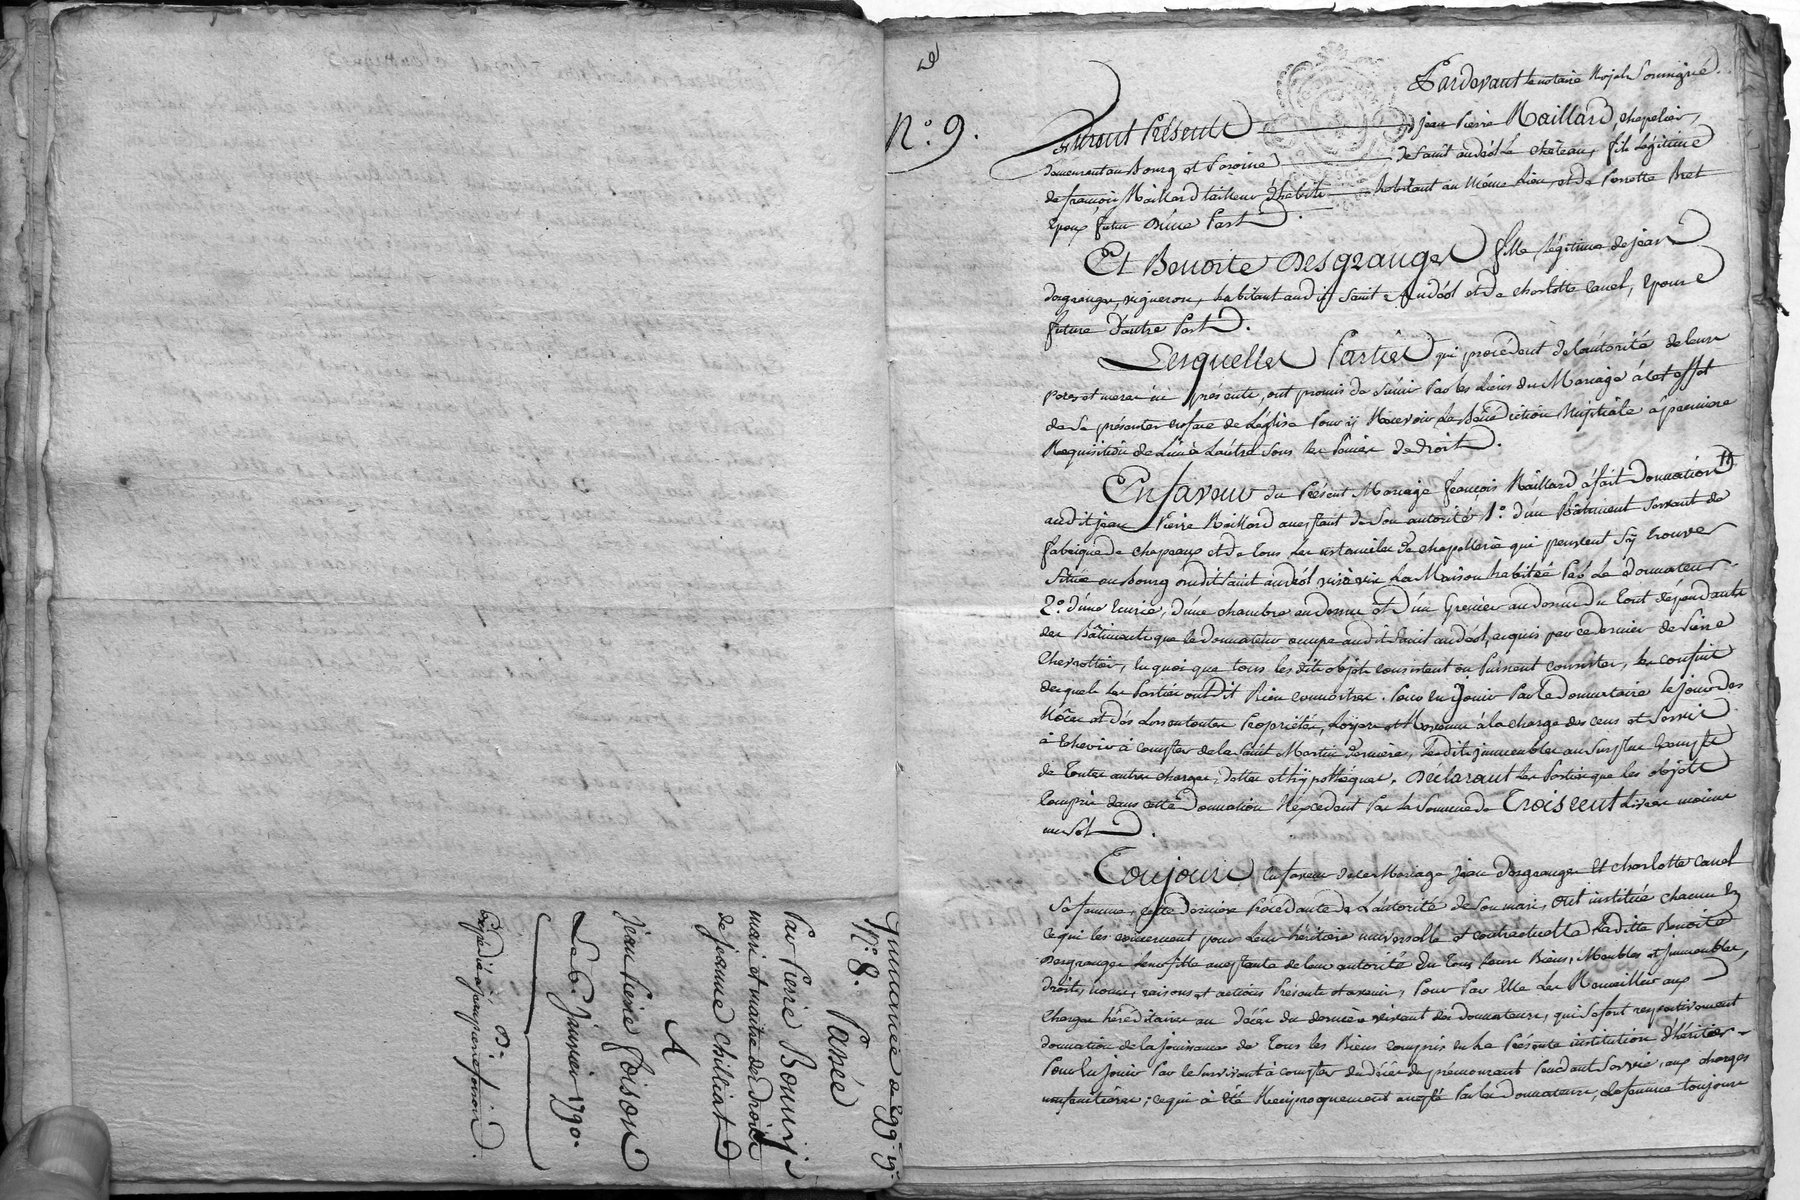 Quittance de 299# 19s
N.° 8. Passée
Par Pierre Bonnij
mari et maitre des droits
de jeanne Chiliat
A
Jean Pierre Poison
Le 6 Janvier 1790.
Expédié à jean pierre poison
N.° 9.
Pardevant le notaire Royal Soussigné.
Furent Présents jean Pierre Maillard, chapelier,
demeurant au Bourg et Paroisse de Saint andéol Le château, fils Légitime
de françois Maillard tailleur d'habits habitant au Même Lieu, et de Perrette Bret
Epoux futur D'une Part.
Et Benoite Desgranges fille légitime de jean
desgranges, vigneron, habitant audit Saint Andéol et de Charlotte Canel, Epouse
future D'autre Part.
Lesquelles Parties qui procédent de l'autorité de leurs
peres et meres ici présents, ont promis de S'unir Par les Liens du Mariage à cet effet
de Se présenter en face de L'église Pour ÿ Recevoir La Bénédiction Nuptiale à premiere
Requisition de L'un à L'autre Sous les Peines de droit.
En faveur du Présent Mariage françois Maillard à fait Donnation
audit jean Pierre Maillard aussi de Son autorité 1.° d'un Bâtiment Servant de
fabrique de chapeaux et de tous les ustanciles de chapellerie qui peuvent S'ÿ trouver
Situé au bourg dudit Saint andéol vis à vis La Maison habitée Par Le donnateur.
2.° d'une Ecurie, d'une chambre au dessus et d'un Grenier au dessus du tout dépendants
des Bâtiments que le donnateur occupe audit Saint andéol, acquis par ce dernier de Pierre
Chevrottier, En quoi que tous les dits objets consistent ou Puissent consister, les confins
desquels les Parties ont dit Bien connoître. Pour En Jouir Par le Donnataire le jour des
Nôces et dès Lors en toute Propriété, à la charge des cens et Servis
à Echevoir à compter de la Saint Martin derniere, Lesdits immeubles au Surplus Exempts
de toutes autres charges, dettes et hÿpothéques. Déclarant les Parties que les objets
Compris dans cette Donnation N'excedent Pas la Somme de Trois cent Livres moins
un Sol.
Toujours En faveur de ce Mariage Jean desgranges Et charlotte Canel
Sa femme, cette derniere Procédante de L'autorité de Son mari, Ont institué chacun En
ce qui les concernent pour Leur héritiere universelle et contractuelle Ladite Benoite
Desgranges Leur fille de leur autorité En tous leurs Biens, Meubles et Immeubles,
droits, noms, raisons et actions Présents et avenir, Pour Par Elle Les Recueillir aux
Charges héréditaires au décès du dernier vivant des donnateurs, qui Se font respectivement
donnation de la jouissance de tous les Biens compris En La Présente institution d'héritier
Pour En jouir Par le Survivant à compter du décès du prémourant Pendant Sa vie, aux charges
usufruitieres; ce qui à été Réciproquement accepté Par les Donnateurs, la femme toujours